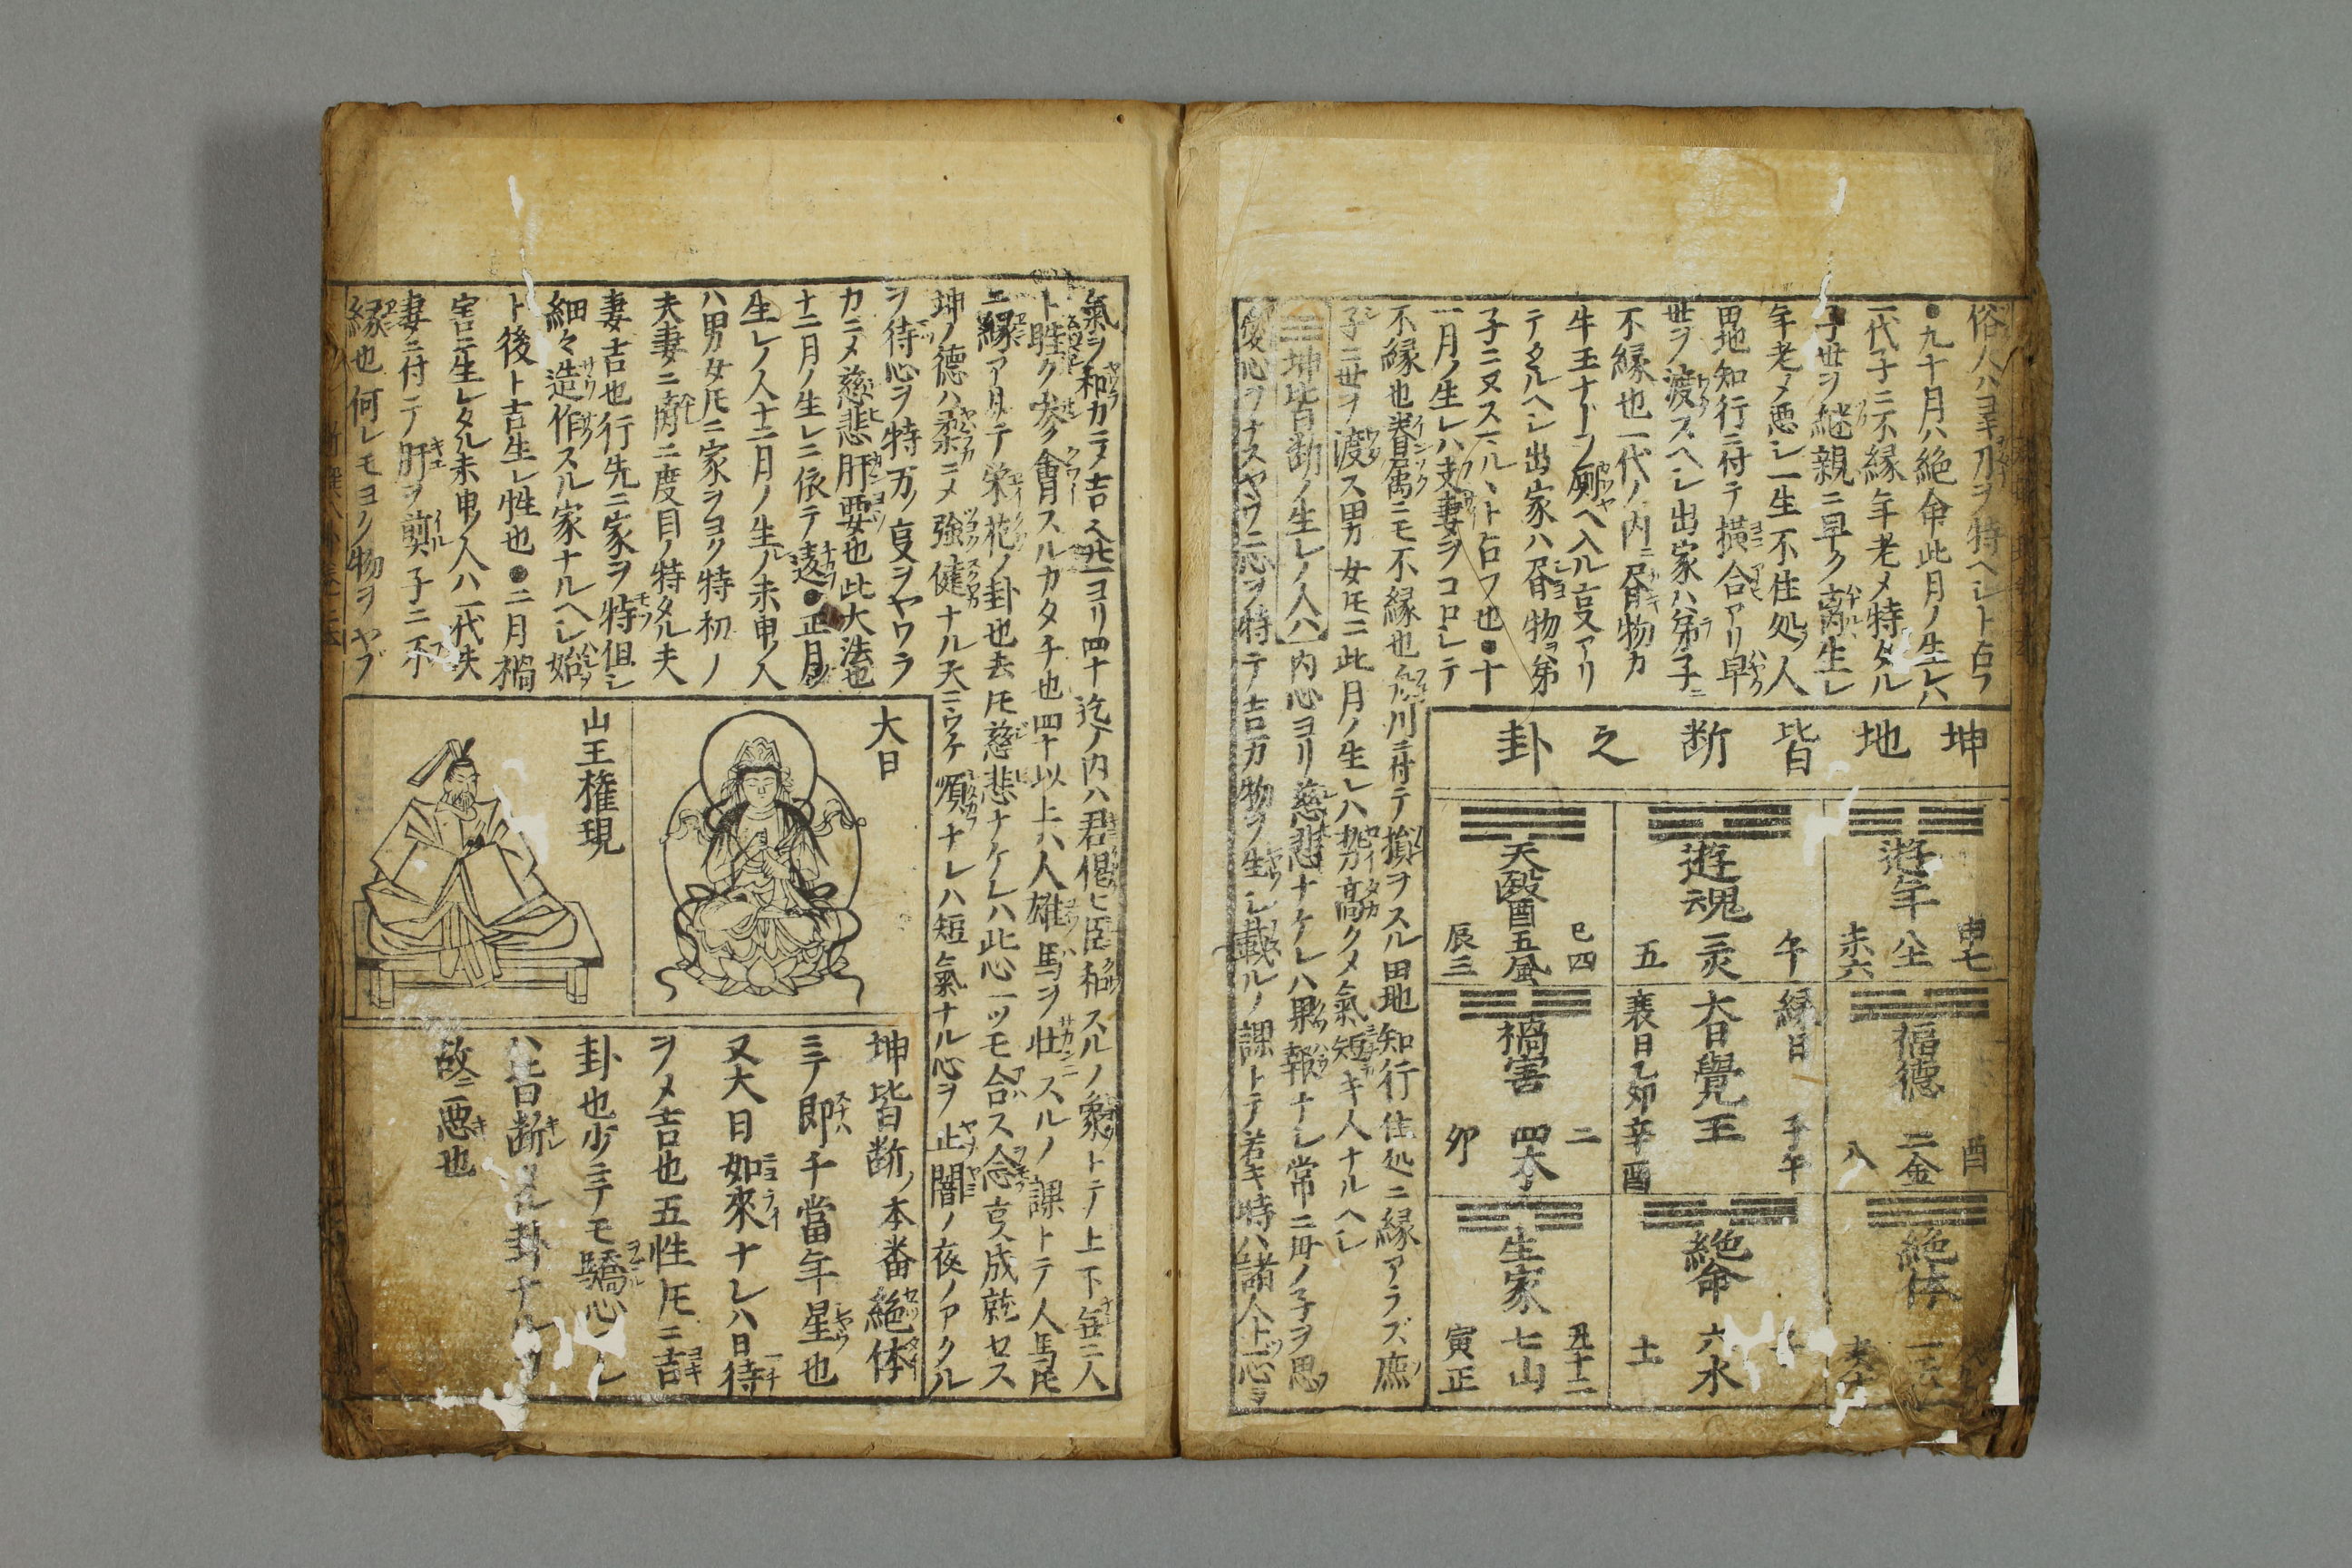 俗人ハヨキ刀ヲ特ヘシト占フ
●九十月ハ絶命此月ノ生レハ
一代子ニ不縁年老メ特タル
子世ヲ継親ニ早ク离生レ
年老メ悪シ一生不住処ノ人
田地知行ニ付テ横合アリ早
世ヲ渡スヘシ出家ハ弟子ニ
不縁也一代ノ内ニ
牛玉ナドヲ厠ヘ入ル㕝アリ
テタルヘシ出家ハ物ヲ弟
子ニヌスマルヽト占フ也●十
一月ノ生レハ夫妻ヲコロシテ
不縁也眷属ニモ不縁也舟川ニ付テ損ヲスル田地知行住処ニ縁アラズ庶
子ニ世ヲ渡ス男女圧ニ此月ノ生レハ勢高クメ氣短キ人ナルヘシ
☷坤皆断ノ生レノ人ハ内心ヨリ慈悲ナケレハ果報ナシ常ニ毋ノ子ヲ思
心ヲナスヤウニ心ヲ特テ吉万物ヲ生シ載ルノ課トテ若キ時ハ諸人上心ヨ
坤地皆断之卦
遊年 申七 八土 未六
福德 酉 二金 八
絶体
遊魂 午 三灵 五
縁日 子午
大日覺王
衰日乙卯辛酉
絶命 六水 土
天醫 巳四 酉五風 辰三
禍害 二 四木 卯
生家 丑十二 七山 寅正
氣ヲ和カニメ吉又廿一ヨリ四十迄ノ内ハ君偓ヒ臣和スルノ象トテ上下无ニ人
ト睦ク参會スルカタチ也四十以上ハ人雄馬ヲ壮スルノ課トテ人馬圧
ニ縁アリテ栄花ノ卦也去圧慈悲ナケレハ此心一ツモ合ス念㕝成就セス
坤ノ德ハ柔ニメ強健ナル天ニウケ順ナレハ短氣ナル心ヲ止闇ノ夜ノアクル
ヲ待心ヲ特万ノ㕝ヲヤワラ
カニメ慈悲肝要也此大法也
十二月ノ生レニ依テ違●正月
生レノ人十二月ノ生ノ未申ノ人
ハ男女圧ニ家ヲヨク特初ノ
夫妻ニ离二度目ノ特タル夫
妻吉也行先ニ家ヲ特但シ
細々造作スル家ナルヘシ始
ト後ト吉生レ性也●二月禍
害ニ生レタル未申ノ人ハ一代夫
妻ニ付テ肝ヲ煎子ニ不
縁也何レモヨリ物ヲヤブ
大日
山王権現
坤皆断ノ本番絶体
ニテ即千當年星也
又大日如來ナレハ日待
ヲメ吉也五性圧ニ吉
卦也少ニテモ驕心アレ
ハ皆断ルル卦ナルヲ
故ニ悪也